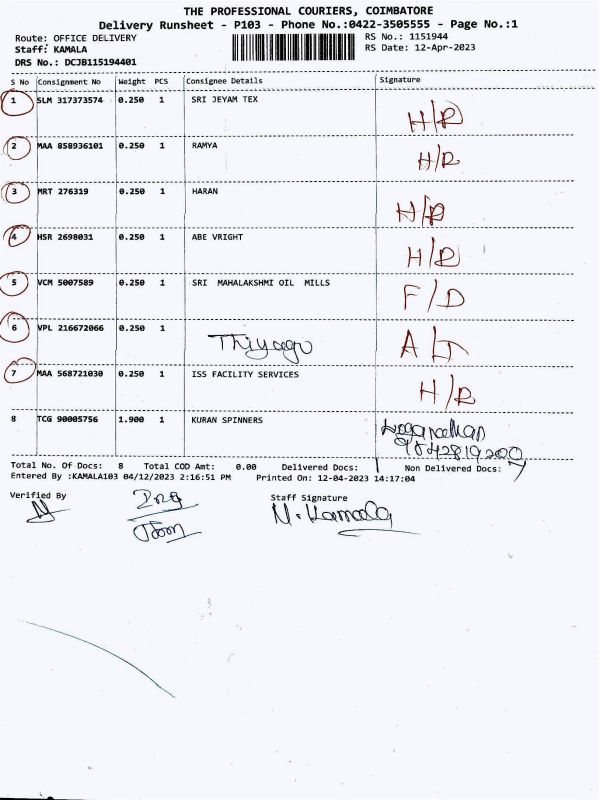 THE PROFESSIONAL COURIERS, COIMBATORE
Delivery Runsheet - P103 - Phone No.:0422-3505555 - Page No.:1
Route: OFFICE DELIVERY RS No.: 1151944
Staff: KAMALA RS Date: 12-Apr-2023
DRS No.: DCJB115194401
S No Consignment No Weight PCS Consignee Details Signature
1 SLM 317373574 0.250 1 SRI JEYAM TEX H/R
2 MAA 858936101 0.250 1 RAMYA H/R
3 MRT 276319 0.250 1 HARAN H/R
4 HSR 2698031 0.250 1 ABE VRIGHT H/R
5 VCM 5007589 0.250 1 SRI MAHALAKSHMI OIL MILLS F/D
6 VPL 216672066 0.250 1 Thiyagu
7 MAA 568721030 0.250 1 ISS FACILITY SERVICES H/R
8 TCG 90005756 1.900 1 KURAN SPINNERS
Total No. Of Docs: 8 Total COD Amt: 0.00 Delivered Docs: 1 Non Delivered Docs: 7
Entered By :KAMALA103 04/12/2023 2:16:51 PM Printed On: 12-04-2023 14:17:04
Verified By Staff Signature
N. Kamala